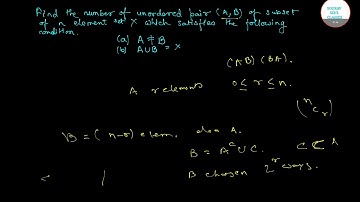 Find the number of unordered pair (A,B) of subset
of n element set X which satisfies the following
condition.
(a) A ≠ B
(b) A∪B = X
(A,B) (B,A).
A r elements 0 ≤ r ≤ n.
(ⁿCᵣ)
B = (n-r) elem. A.
B = Aᶜ ∪ C. C ⊂ A
B chosen 2ʳ ways.